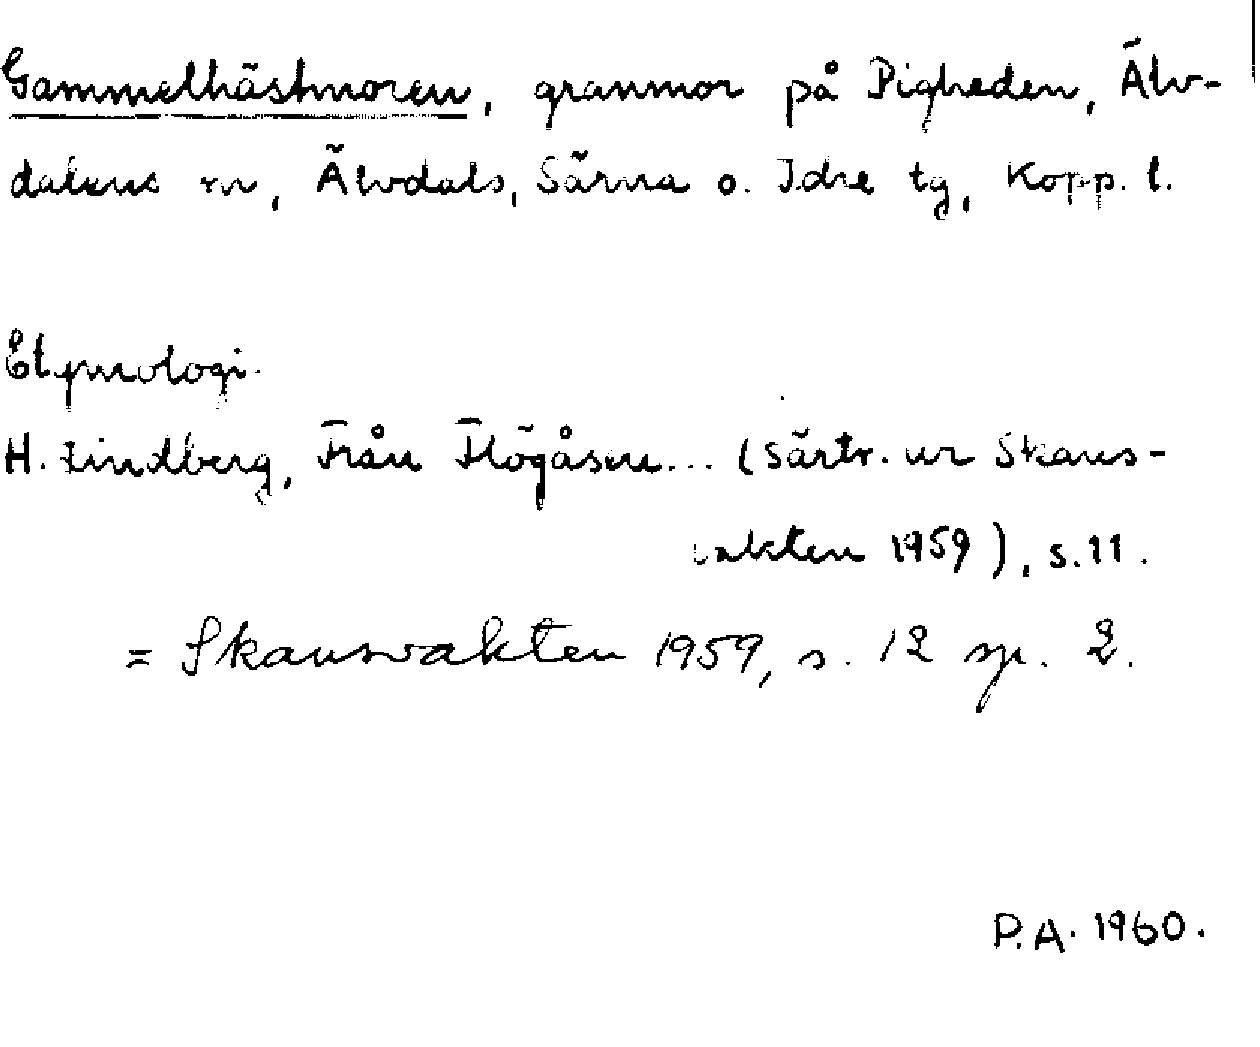 Gammelhästmoren, granmor på Pigheden, Älv-
dalens sn, Älvdals, Särna o. Idre tg, Kopp. l.
Etymologi.
H. Lindberg, Från Flögåsen... (Särtr. ur Skans-
vakten 1959), s. 11.
= Skansvakten 1959, s. 12 sp. 2.
P.A. 1960.